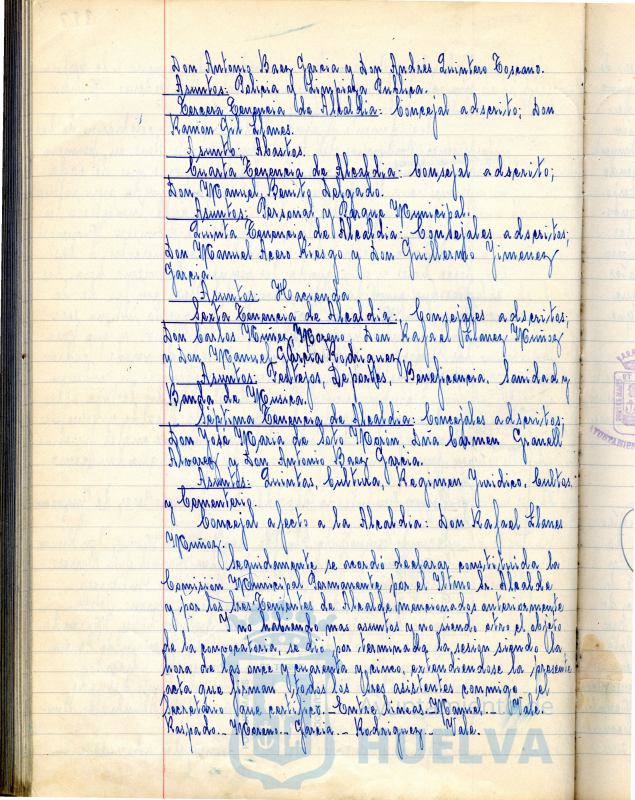 Don Antonio Baez Garcia y Don Andrés Quintero Toscano.
Asuntos: Policia y Limpieza Publica.
Tercera Tenencia de Alcaldia: Concejal adscrito; Don
Ramon Gil Llanes.
Asunto: Abastos.
Cuarta Tenencia de Alcaldia: Consejal adscrito;
Don Manuel Benito Delgado.
Asuntos: Personal y Parque Municipal.
Quinta Tenencia de Alcaldia: Consejales adscritos;
Don Manuel Acero Riesgo y Don Guillermo Jimenez
Garcia.
Asuntos: Hacienda
Sexta Tenencia de Alcaldia: Consejales adscritos;
Don Carlos Muñoz Moreno, Don Rafael Llanez Muñoz
y Don Manuel Garcia Rodriguez
Asuntos: Festejos, Deportes, Beneficencia, Sanidad y
Banda de Musica.
Séptima Tenencia de Alcaldia: Concejales adscritos;
Don José Maria de Soto Morón, Dña Carmen Granell
Alvarez y Don Antonio Baez Garcia.
Asuntos: Quintas, Cultura, Regimen Juridico, Cultos
y Cementerio.
Concejal afecto a la Alcaldia: Don Rafael Llanes
Muñoz.
Seguidamente se acordó declarar constituida la
Comisión Municipal Permanente por el Iltmo Sr. Alcalde
y por los tres Tenientes de Alcalde mencionados anteriormente
Y no habiendo mas asuntos y no siendo otro el objeto
de la convocatoria, se dio por terminada la sesion siendo la
hora de las once y cuarenta y cinco, extendiendose la presente
acta que firman todos los Sres asistentes conmigo el
Secretario que certifico. Entre lineas - Manuel - Vale.
Raspado - Moreno - Garcia - Rodriguez - Vale.
HUELVA